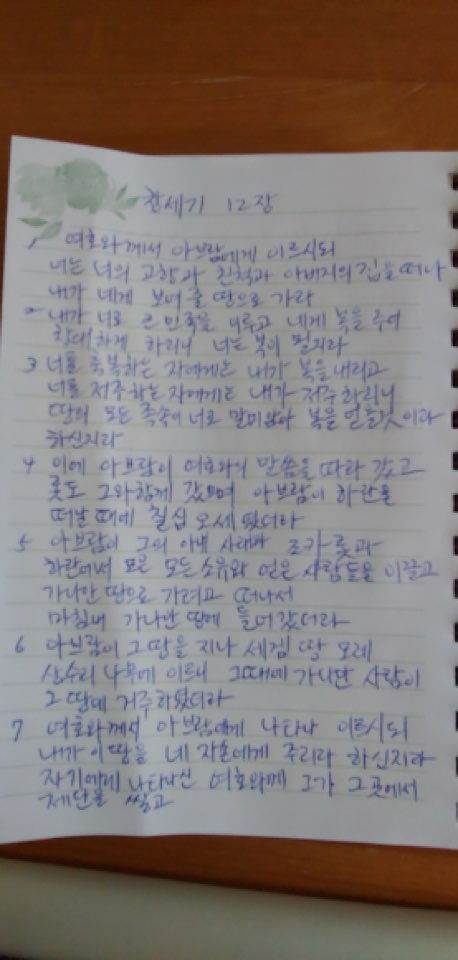 창세기 12장
1 여호와께서 아브람에게 이르시되
너는 너의 고향과 친척과 아버지의 집을 떠나
내가 네게 보여 줄 땅으로 가라
2 내가 너로 큰 민족을 이루고 네게 복을 주어
창대하게 하리니 너는 복이 될지라
3 너를 축복하는 자에게는 내가 복을 내리고
너를 저주하는 자에게는 내가 저주하리니
땅의 모든 족속이 너로 말미암아 복을 얻을 것이라
하신지라
4 이에 아브람이 여호와의 말씀을 따라 갔고
롯도 그와 함께 갔으며 아브람이 하란을
떠날 때에 칠십 오세 였더라
5 아브람이 그의 아내 사래와 조카 롯과
하란에서 모은 모든 소유와 얻은 사람들을 이끌고
가나안 땅으로 가려고 떠나서
마침내 가나안 땅에 들어갔더라
6 아브람이 그 땅을 지나 세겜 땅 모레
상수리 나무에 이르니 그때에 가나안 사람이
그 땅에 거주하였더라
7 여호와께서 아브람에게 나타나 이르시되
내가 이 땅을 네 자손에게 주리라 하신지라
자기에게 나타나신 여호와께 그가 그 곳에서
제단을 쌓고